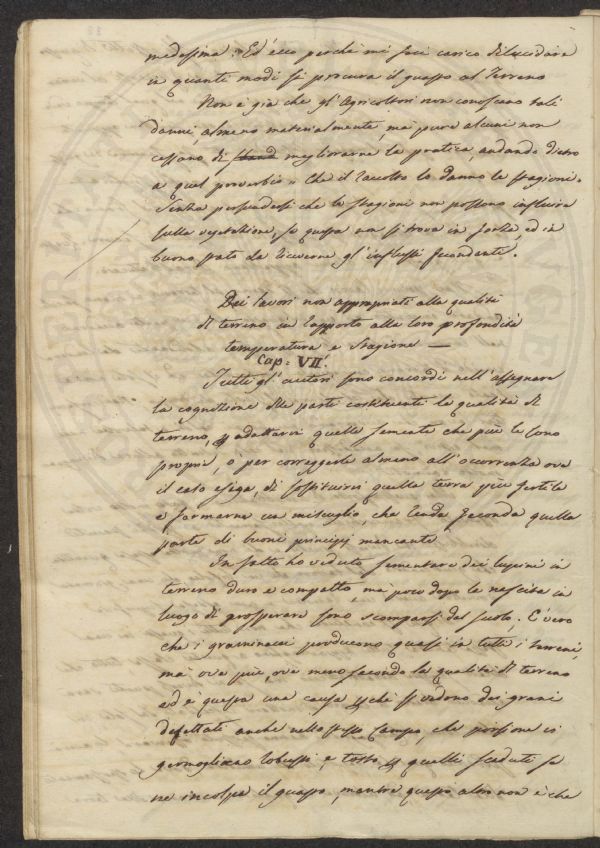 medesima: Ed ecco perchè mi feci carico dilucidare
in quanti modi si procura il guasto al Terreno
Non è già che gl'Agricoltori non conoscano tali
danni, almeno materialmente, mà pure alcuni non
cessano di migliorarne la pratica, andando dietro
a quel proverbio „ Che il raccolto lo danno le stagioni.
Senza persuadersi che le stagioni non possono influire
sulla vegetazione, se questa non si trova in forze, ed in
buono stato da ricevere gl'influssi fecondanti.
Dei lavori non appropriati alla qualità
di terreno in rapporto alla loro profondità
temperatura e Stagione —
Cap: VII.
Tutti gl'autori sono concordi nell'assegnare
la cognizione delle parti costituenti le qualità di
terreno, p adattarvi quelle semente che più le sono
proprie, o per correggerle almeno all'occorrenza ove
il caso esiga, di sostituirvi quella terra più fertile
e formarne un miscuglio, che renda feconda quella
parte di buoni principj mancante
In fatto ho veduto sementare dei lupini in
terreno duro e compatto, mà poco dopo la nascita in
luogo di prosperare sono scomparsi dal suolo. È vero
che i graminacei producono quasi in tutti i terreni,
mà ove più, ove meno secondo la qualità di terreno
ed è questa una causa pchè si vedono dei grani
difettati anche nello stesso Campo, che porzione vi
germogliano robusti, e tosto, p quelli scaduti se
ne incolpa il guasto, mentre questo altro non è che